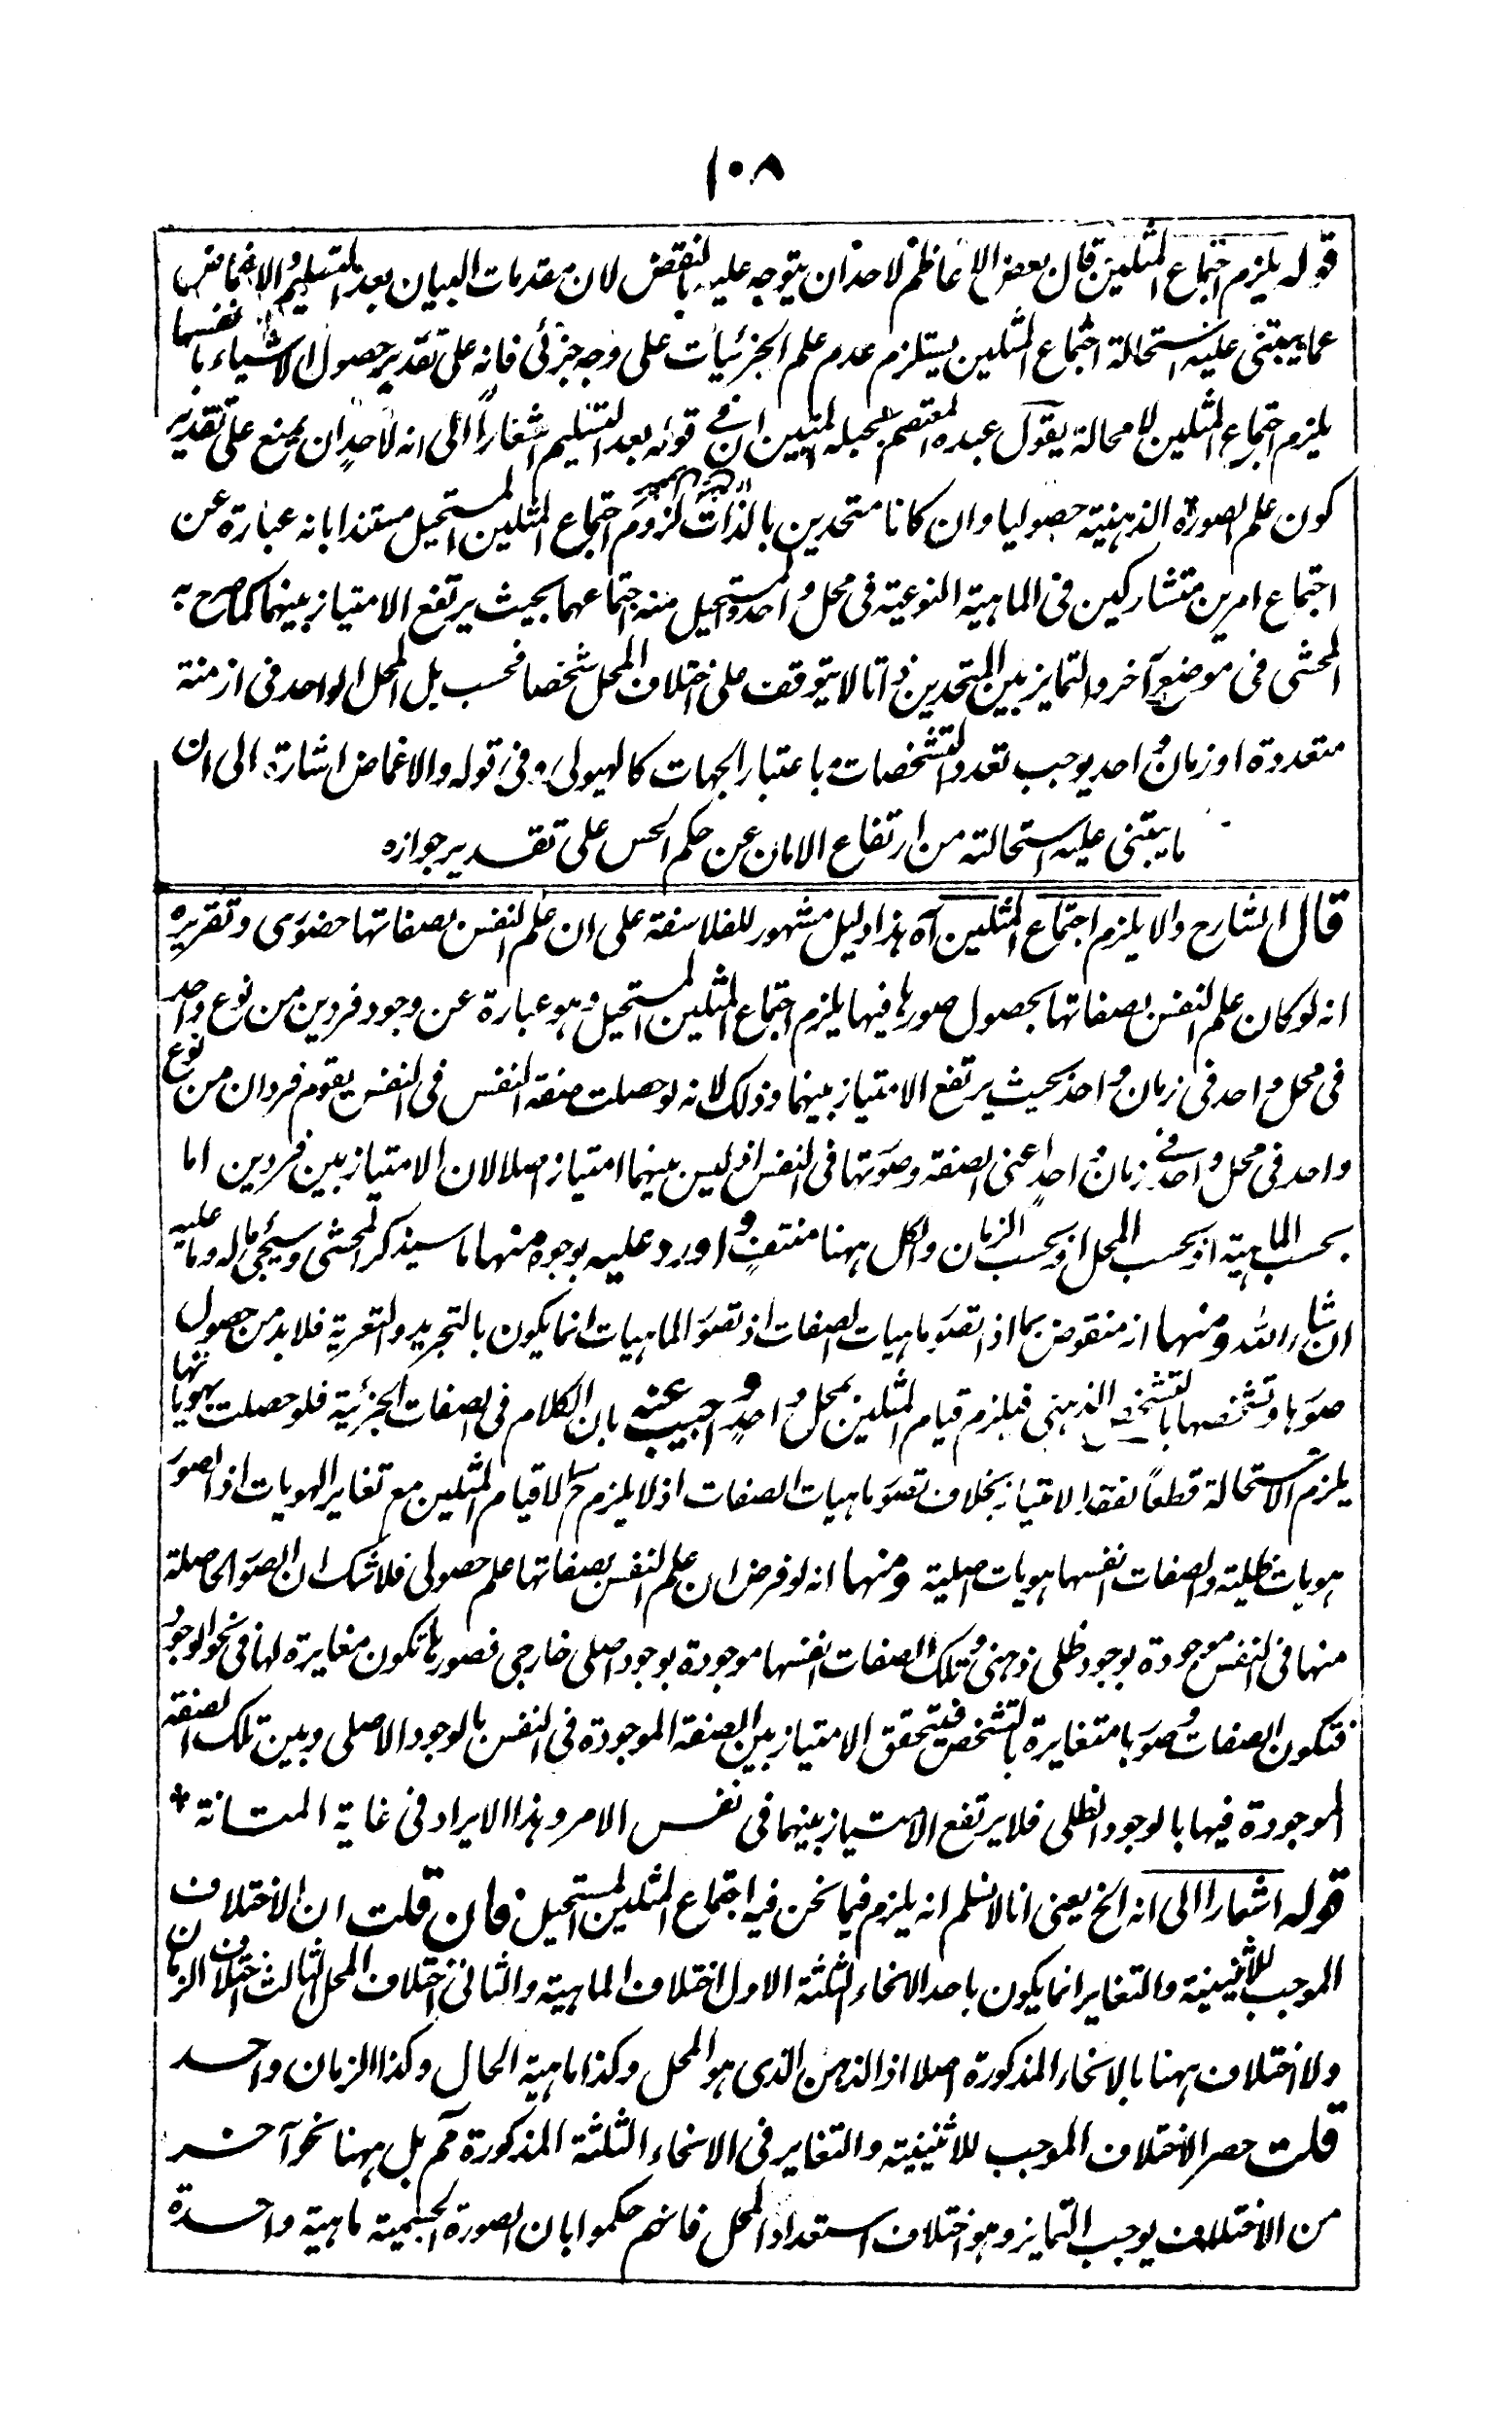 ١٠٨
قوله يلزم اجتماع المثلين قال بعض الاعاظم لاحد ان يتوجه عليه بالنقض لان مقدمات البيان بعد التسليم والاغماض
عما يبتنى عليه استحالة اجتماع المثلين يستلزم عدم علم الجزئيات على وجه جزئى فانه على تقدير حصول الاشياء بانفسها
يلزم اجتماع المثلين لا محالة يقول عبده المعتصم بحبله المتين ان فى قوله بعد التسليم اشعارا الى انه لاحد ان يمنع على تقدير
كون علم الصورة الذهنية حصوليا وان كانا متحدين بالذات لزوم اجتماع المثلين المستحيل مستندا بانه عبارة عن
اجتماع امرين متشاركين فى الماهية النوعية فى محل واحد والمستحيل منه اجتماعهما بحيث يرتفع الامتياز بينهما كما صرح به
المحشى فى موضع آخر والتمايز بين المتحدين ذاتا لا يتوقف على اختلاف المحل شخصا فحسب بل المحل الواحد فى ازمنة
متعددة او زمان واحد يوجب تعدد التشخصات باعتبار الجهات كالهيولى وفى قوله والاغماض اشارة الى ان
ما يبتنى عليه استحالته من ارتفاع الامان عن حكم الحس على تقدير جوازه
قال الشارح والا يلزم اجتماع المثلين آه هذا دليل مشهور للفلاسفة على ان علم النفس بصفاتها حضورى وتقريره
انه لو كان علم النفس بصفاتها بحصول صورها فيها يلزم اجتماع المثلين المستحيل وهو عبارة عن وجود فردين من نوع واحد
فى محل واحد فى زمان واحد بحيث يرتفع الامتياز بينهما وذلك لانه لو حصلت صفة النفس فى النفس يقوم فردان من نوع
واحد فى محل واحد فى زمان واحد اعنى الصفة وصورتها فى النفس اذ ليس بينهما امتياز اصلا لان الامتياز بين فردين اما
بحسب الماهية او بحسب المحل او بحسب الزمان والكل ههنا منتف واورد عليه بوجوه منها ما سيذكر المحشى وسيجئ ما له وما عليه
ان شاء الله ومنها انه منقوض بما اذا تصور ماهيات الصفات اذ تصور الماهيات انما يكون بالتجريد والتعرية فلا بد من حصول
صورها وتشخصها بالتشخص الذهنى فيلزم قيام المثلين بمحل واحد واجيب عنه بان الكلام فى الصفات الجزئية فلو حصلت بهوياتها
يلزم الاستحالة قطعا لفقد الامتياز بخلاف تصور ماهيات الصفات اذ لا يلزم ح الا قيام المثلين مع تغاير الهويات اذ الصور
هويات ظلية والصفات انفسها هويات اصلية ومنها انه لو فرض ان علم النفس بصفاتها علم حصولى فلا شك ان الصور الحاصلة
منها فى النفس موجودة بوجود ظلى ذهنى وتلك الصفات انفسها موجودة بوجود اصلى خارجى فصورها تكون مغايرة لها فى نحو الوجود
فتكون الصفات وصورها متغايرة بالتشخص فيتحقق الامتياز بين الصفة الموجودة فى النفس بالوجود الاصلى وبين تلك الصفة
الموجودة فيها بالوجود الظلى فلا يرتفع الامتياز بينهما فى نفس الامر وهذا الايراد فى غاية المتانة *
قوله اشعارا الى انه الخ يعنى انا لا نسلم انه يلزم فيما نحن فيه اجتماع المثلين المستحيل فان قلت ان الاختلاف
الموجب للاثنينية والتغاير انما يكون باحد الانحاء الثلثة الاول اختلاف الماهية والثانى اختلاف المحل الثالث اختلاف الزمان
ولا اختلاف ههنا بالانحاء المذكورة اصلا اذ الذهن الذى هو المحل وكذا ماهية الحال وكذا الزمان واحد
قلت حصر الاختلاف الموجب للاثنينية والتغاير فى الانحاء الثلثة المذكورة مم بل ههنا نحو آخر
من الاختلاف يوجب التمايز وهو اختلاف استعداد المحل فانهم حكموا بان الصورة الجسمية ماهية واحدة